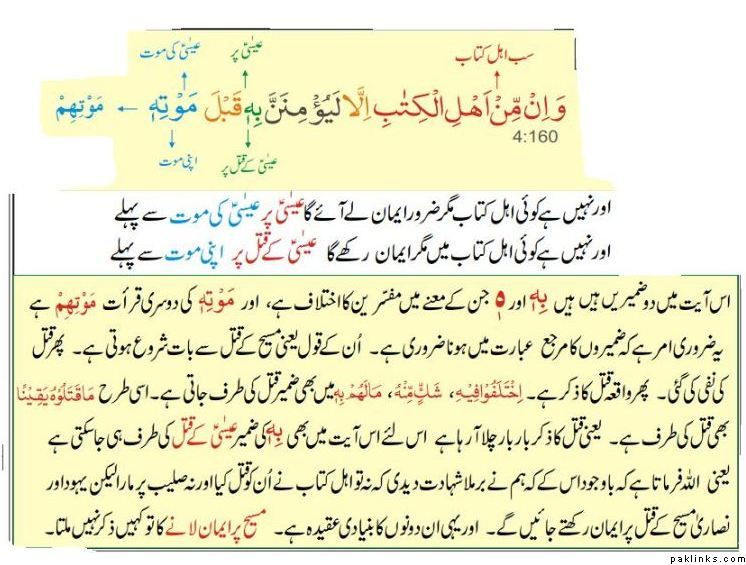 سب اہل کتاب عیسیٰؑ پر عیسیٰؑ کی موت
وَاِنْ مِّنْ اَهْلِ الْكِتٰبِ اِلَّا لَيُؤْمِنَنَّ بِهٖ قَبْلَ مَوْتِهٖ ← مَوْتِهِمْ
4:160
عیسیٰؑ کے قتل پر اپنی موت
اور نہیں ہے کوئی اہل کتاب مگر ضرور ایمان لے آئے گا عیسیٰؑ پر عیسیٰؑ کی موت سے پہلے
اور نہیں ہے کوئی اہل کتاب میں مگر ایمان رکھے گا عیسیٰؑ کے قتل پر اپنی موت سے پہلے
اس آیت میں دو ضمیریں ہیں ہیں بِهٖ اور هٖ جن کے معنے میں مفسّرین کا اختلاف ہے، اور مَوْتِهٖ کی دوسری قرأت مَوْتِهِمْ ہے
یہ ضروری امر ہے کہ ضمیروں کا مرجع عبارت میں ہونا ضروری ہے۔ اُن کے قول یعنی مسیح کے قتل سے بات شروع ہوتی ہے۔ پھر قتل
کی نفی کی گئی۔ پھر واقعہ قتل کا ذکر ہے۔ اِخْتَلَفُوْا فِيْهِ، شَكٍّ مِّنْهُ، مَالَهُمْ بِهٖ میں بھی ضمیر قتل کی طرف جاتی ہے۔ اسی طرح مَاقَتَلُوْهُ يَقِيْنًا
بھی قتل کی طرف ہے۔ یعنی قتل کا ذکر بار بار چلا آ رہا ہے اس لئے اس آیت میں بھی بِهٖ کی ضمیر عیسیٰؑ کے قتل کی طرف ہی جا سکتی ہے
یعنی اللہ فرماتا ہے کہ باوجود اس کے کہ ہم نے برملا شہادت دیدی کہ نہ تو اہل کتاب نے اُن کو قتل کیا اور نہ صلیب پر مارا لیکن یہود اور
نصاریٰ مسیح کے قتل پر ایمان رکھتے جائیں گے۔ اور یہی ان دونوں کا بنیادی عقیدہ ہے۔ مسیح پر ایمان لانے کا تو کہیں ذکر نہیں ملتا۔
paklinks.com